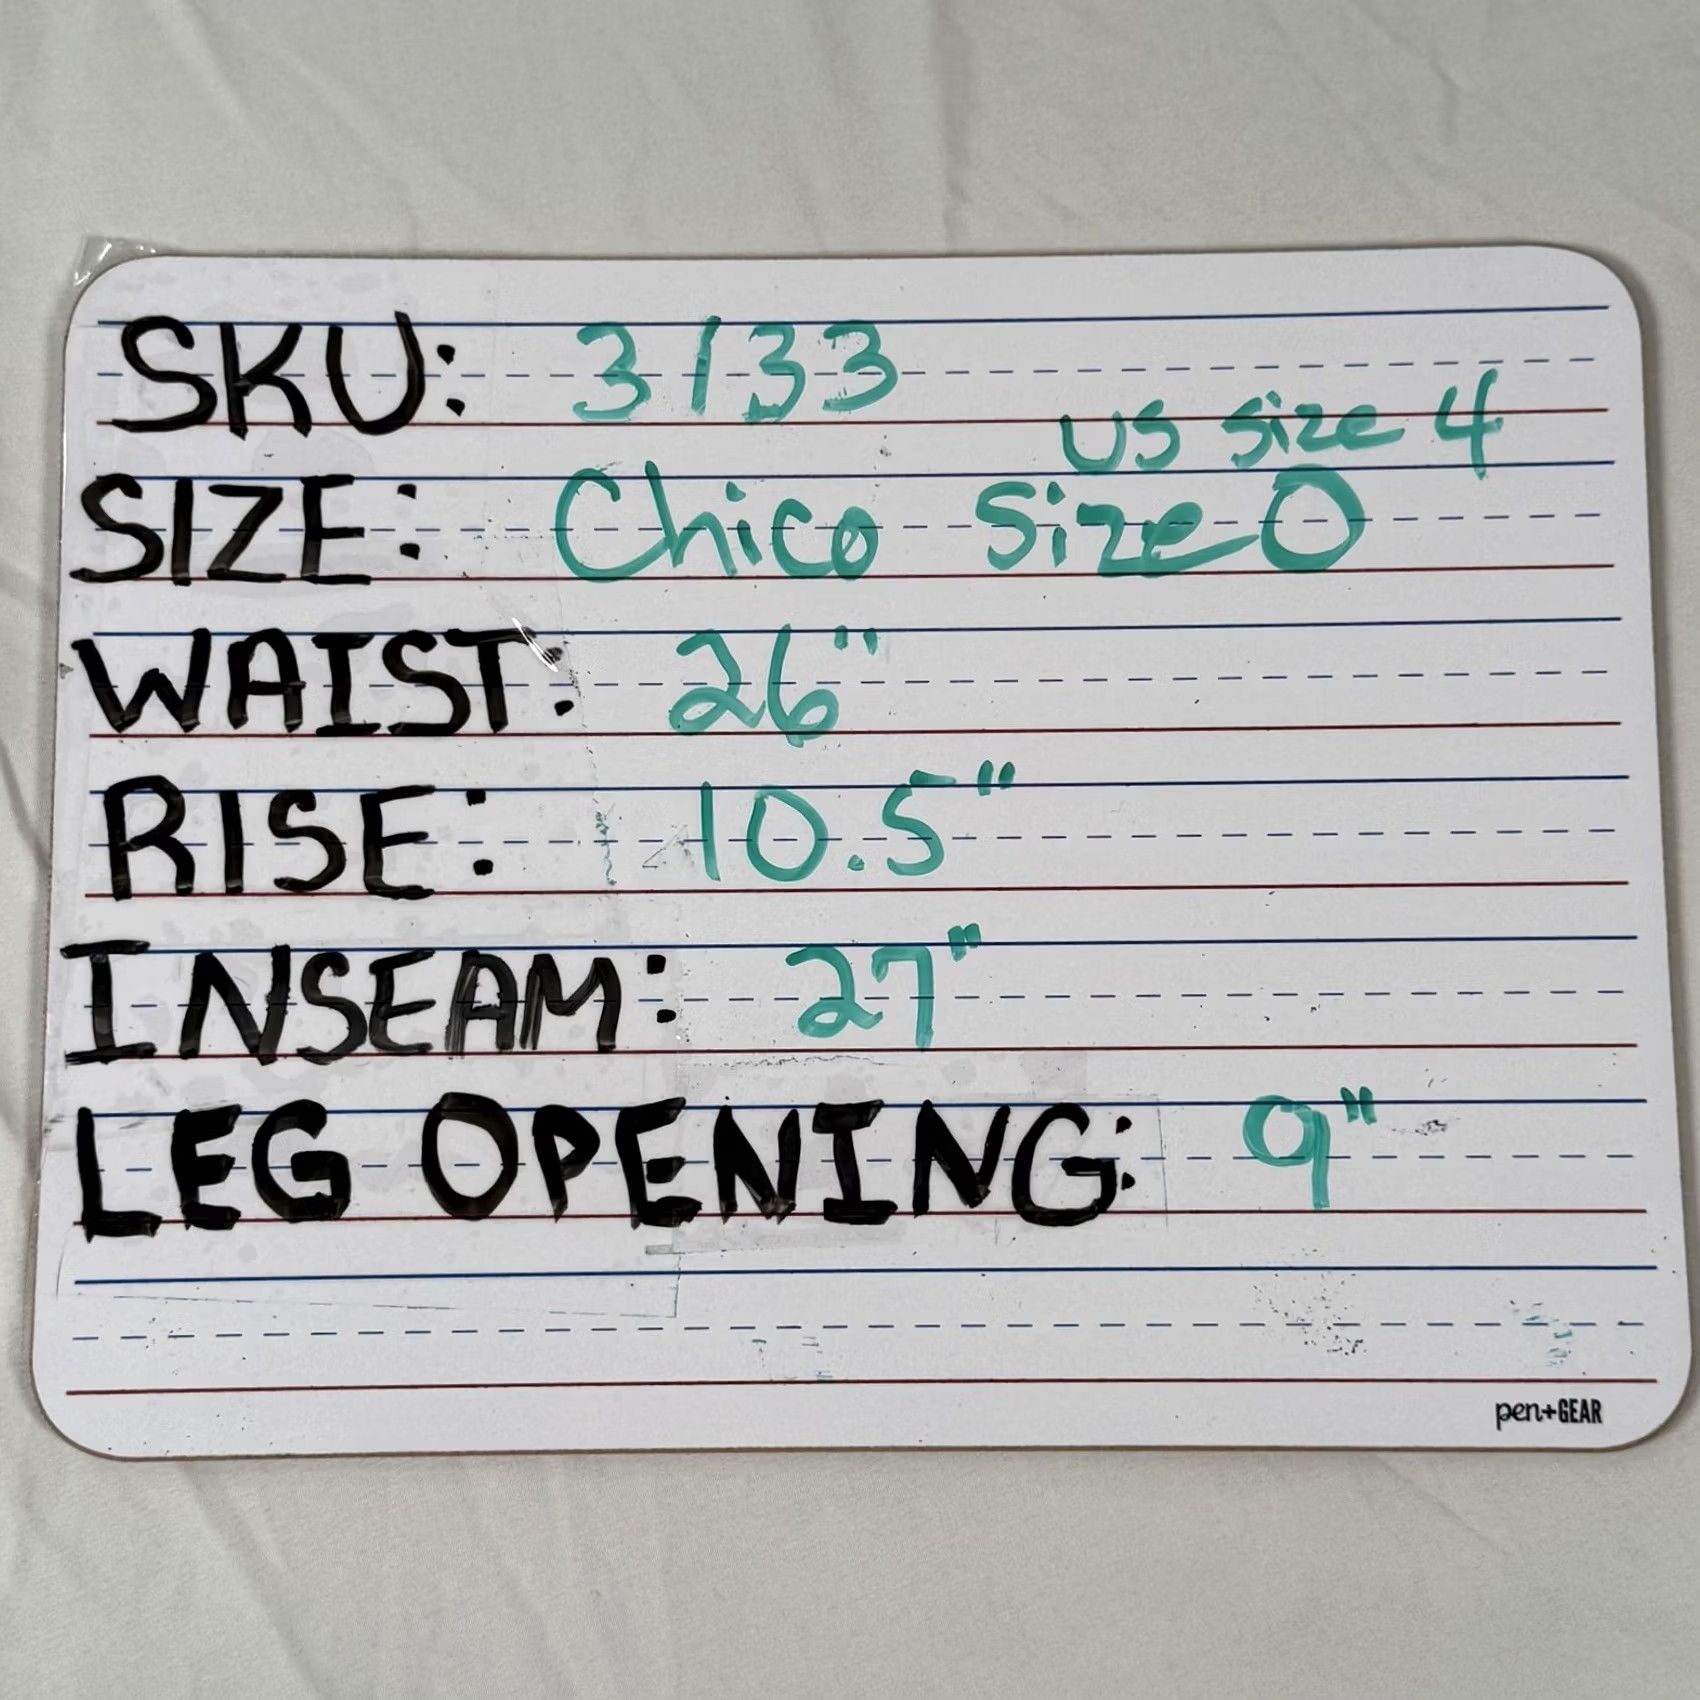 SKU: 3133
US Size 4
SIZE: Chico Size 0
WAIST: 26"
RISE: 10.5"
INSEAM: 27"
LEG OPENING: 9"
pen+GEAR